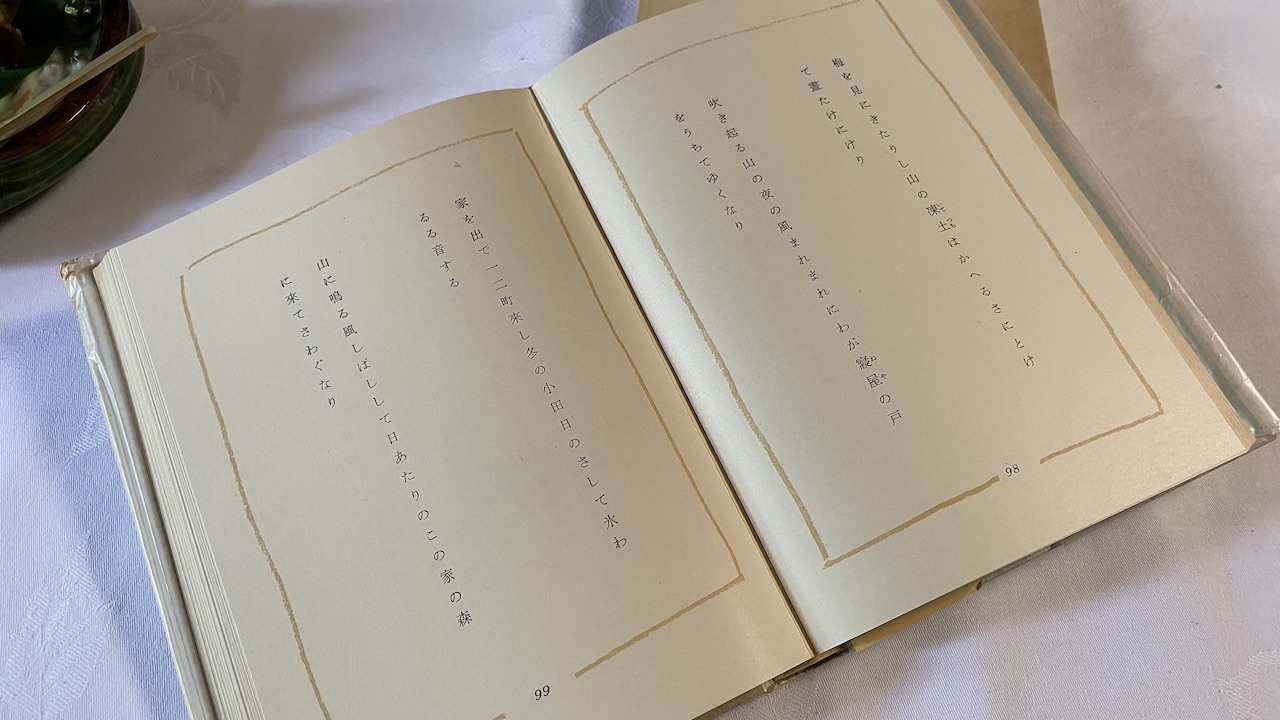 梅を見にきたりし山の凍土はかへるさにとけ
て晝たけにけり
吹き起る山の夜の風まれまれにわが寢屋の戸
をうちてゆくなり
98
家を出で一二町來し冬の小田日のさして氷わ
るる音する
山に鳴る風しばしして日あたりのこの家の森
に來てさわぐなり
99